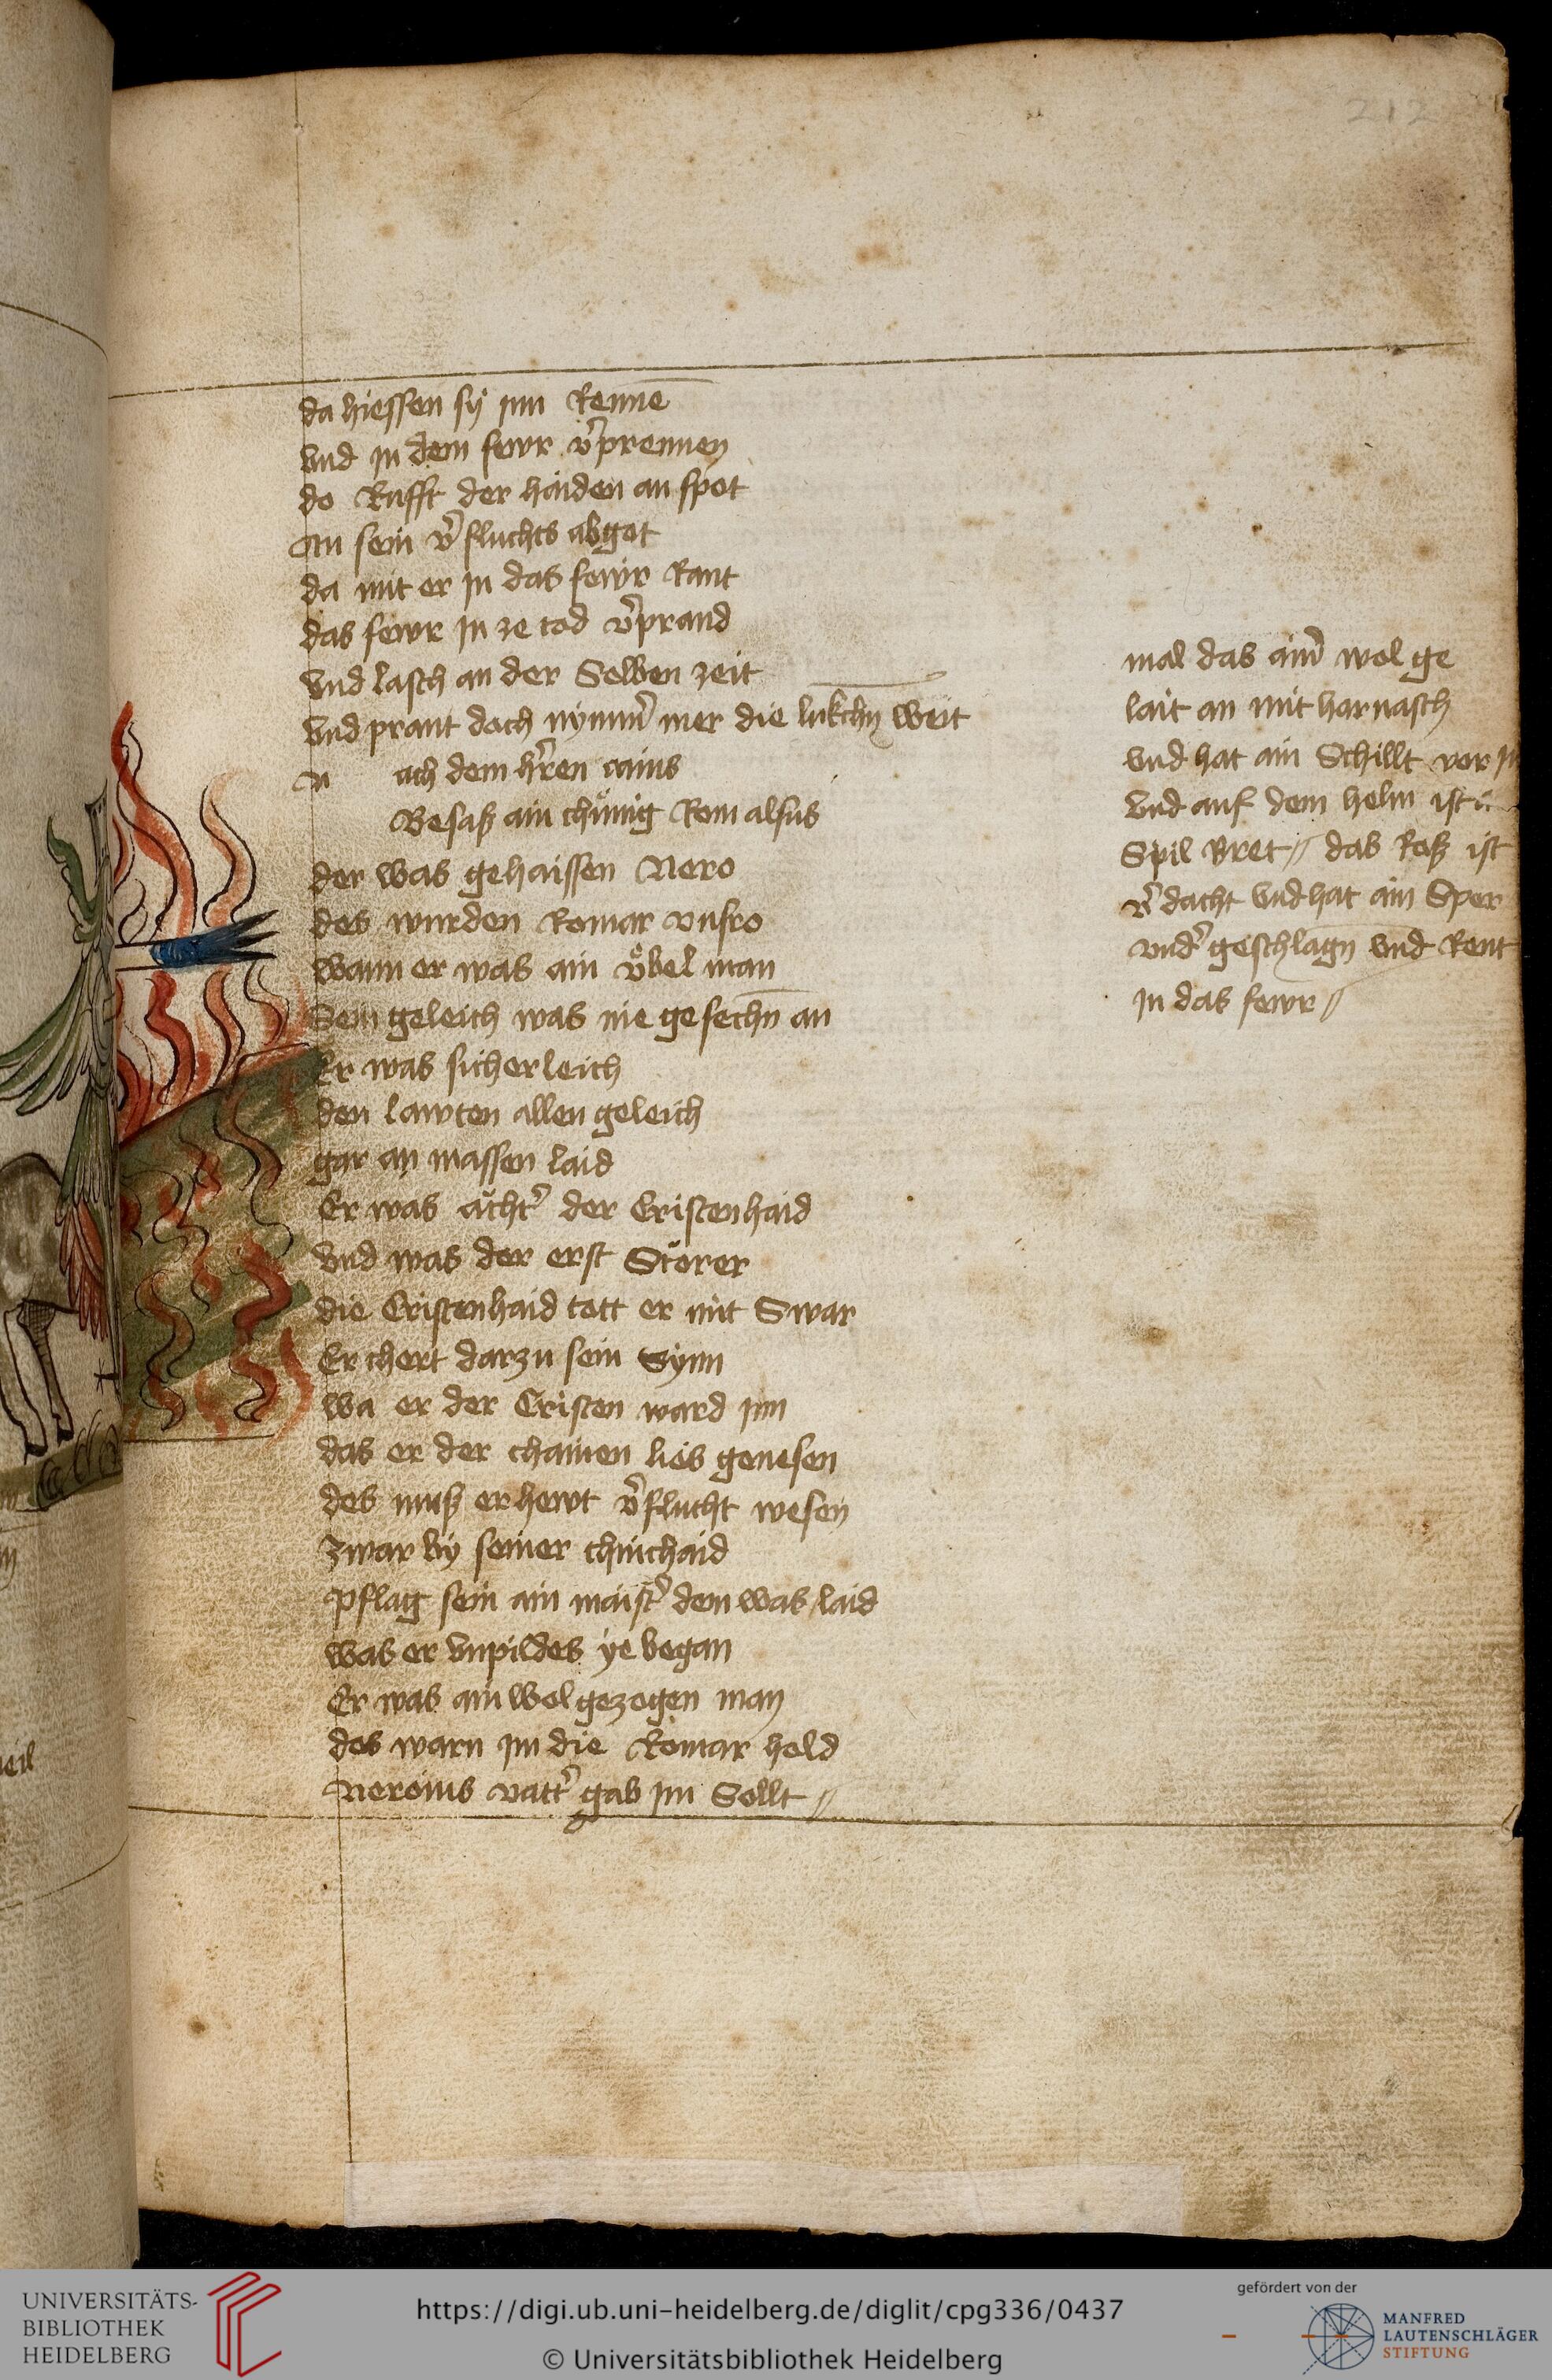 212
da hiessen sÿ jnn Rennē
vnd jn dem fewr v̾prennen
do Rufft der haiden an spot
An sein v̾fluchts abgot
da mit er jn das fewr Rant
das fewr jn ze tod v̾prand
vnd lasch an der Selben zeit
vnd prant doch nÿmm̾ mer die lukchn̄ weit
n ach dem h̾ren caius
Besaß ain chünig Rom alsus
der was gehaissen Nero
des wurden Romar vnfro
wann er was ain vͤbel man
Sein geleich was nie gesechn̄ an
Er was sicherleich
den lawten allen geleich
gar an massen laid
Er was ächt̾ der Cristenhaid
vnd was der erst Störer
die Cristenhaid tett er mit Swar
Er chert darzu sein Synn
wa er der Cristen ward jnn
das er der chainen lies genesen
des muß er hewt v̾flucht wesen
Zwar by seiner chinthaid
Pflag sein ain maist̾ dem was laid
was er vnpildes ye began
Er was ain wol gezogen man
des warn jm die Römar hold
Neronis vatt̾ gab jm Sollt //
mal das aim̾ wol ge
lait an mit harnasch
vnd hat ain Schillt vor jm
vnd auf dem helm ist
Spil Bret // das Roß ist
v̾dacht vnd hat ain Sper
vnd̾ geschlagn̄ vnd Rent
jn das fewr //
eil
UNIVERSITÄTS-
BIBLIOTHEK
HEIDELBERG
https://digi.ub.uni-heidelberg.de/diglit/cpg336/0437
© Universitätsbibliothek Heidelberg
gefördert von der
MANFRED
LAUTENSCHLÄGER
STIFTUNG